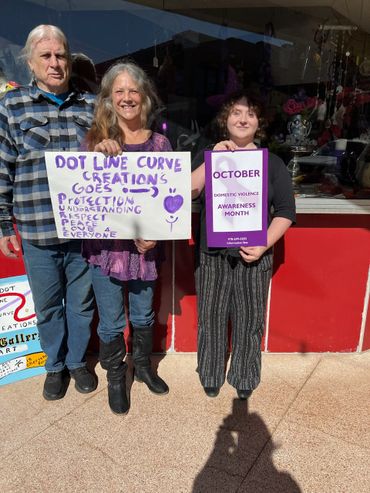 DOT LINE CURVE
CREATIONS
GOES
PROTECTION
UNDERSTANDING
RESPECT
PEACE
LOVE 4
EVERYONE
OCTOBER
DOMESTIC VIOLENCE
AWARENESS
MONTH
DOT
CREATIONS
Gallery
ART